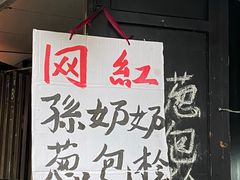 网紅
孫奶奶
葱包桧
葱包